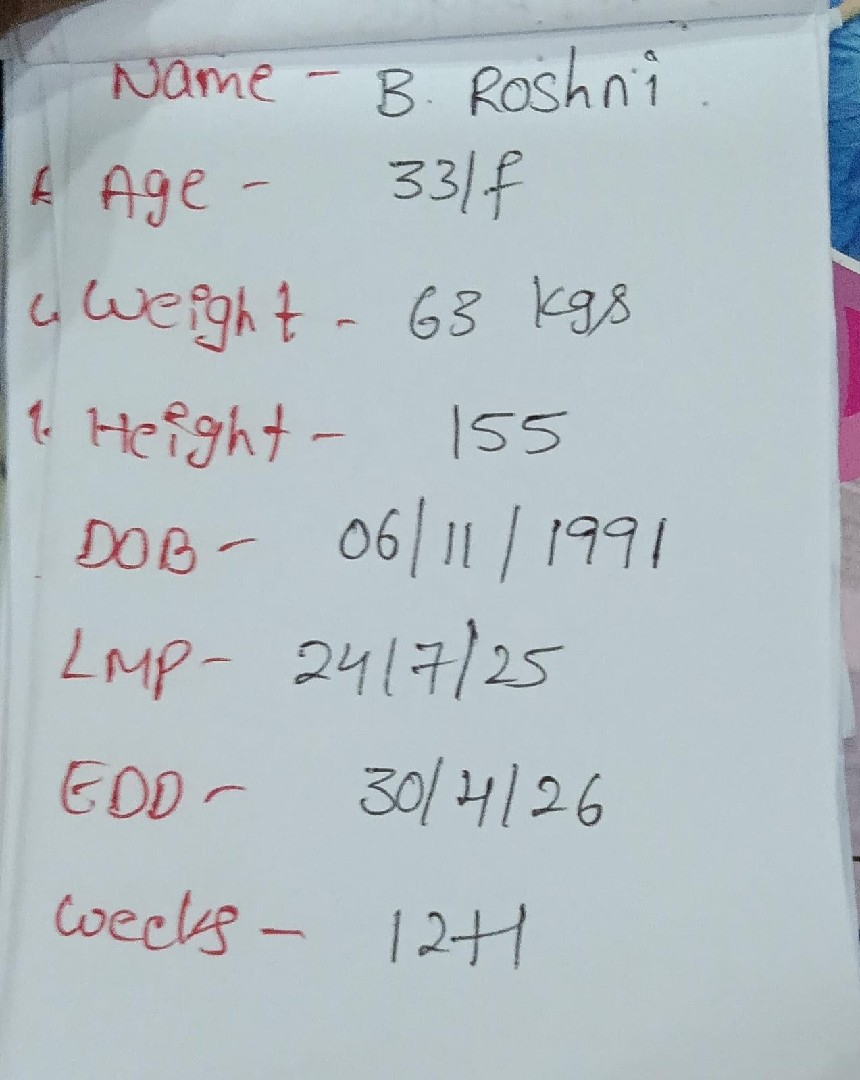 Name - B. Roshni.
Age - 33/f
Weight - 63 kgs
Height - 155
DOB - 06/11/1991
LMP - 24/7/25
EDD - 30/4/26
Weeks - 12+1